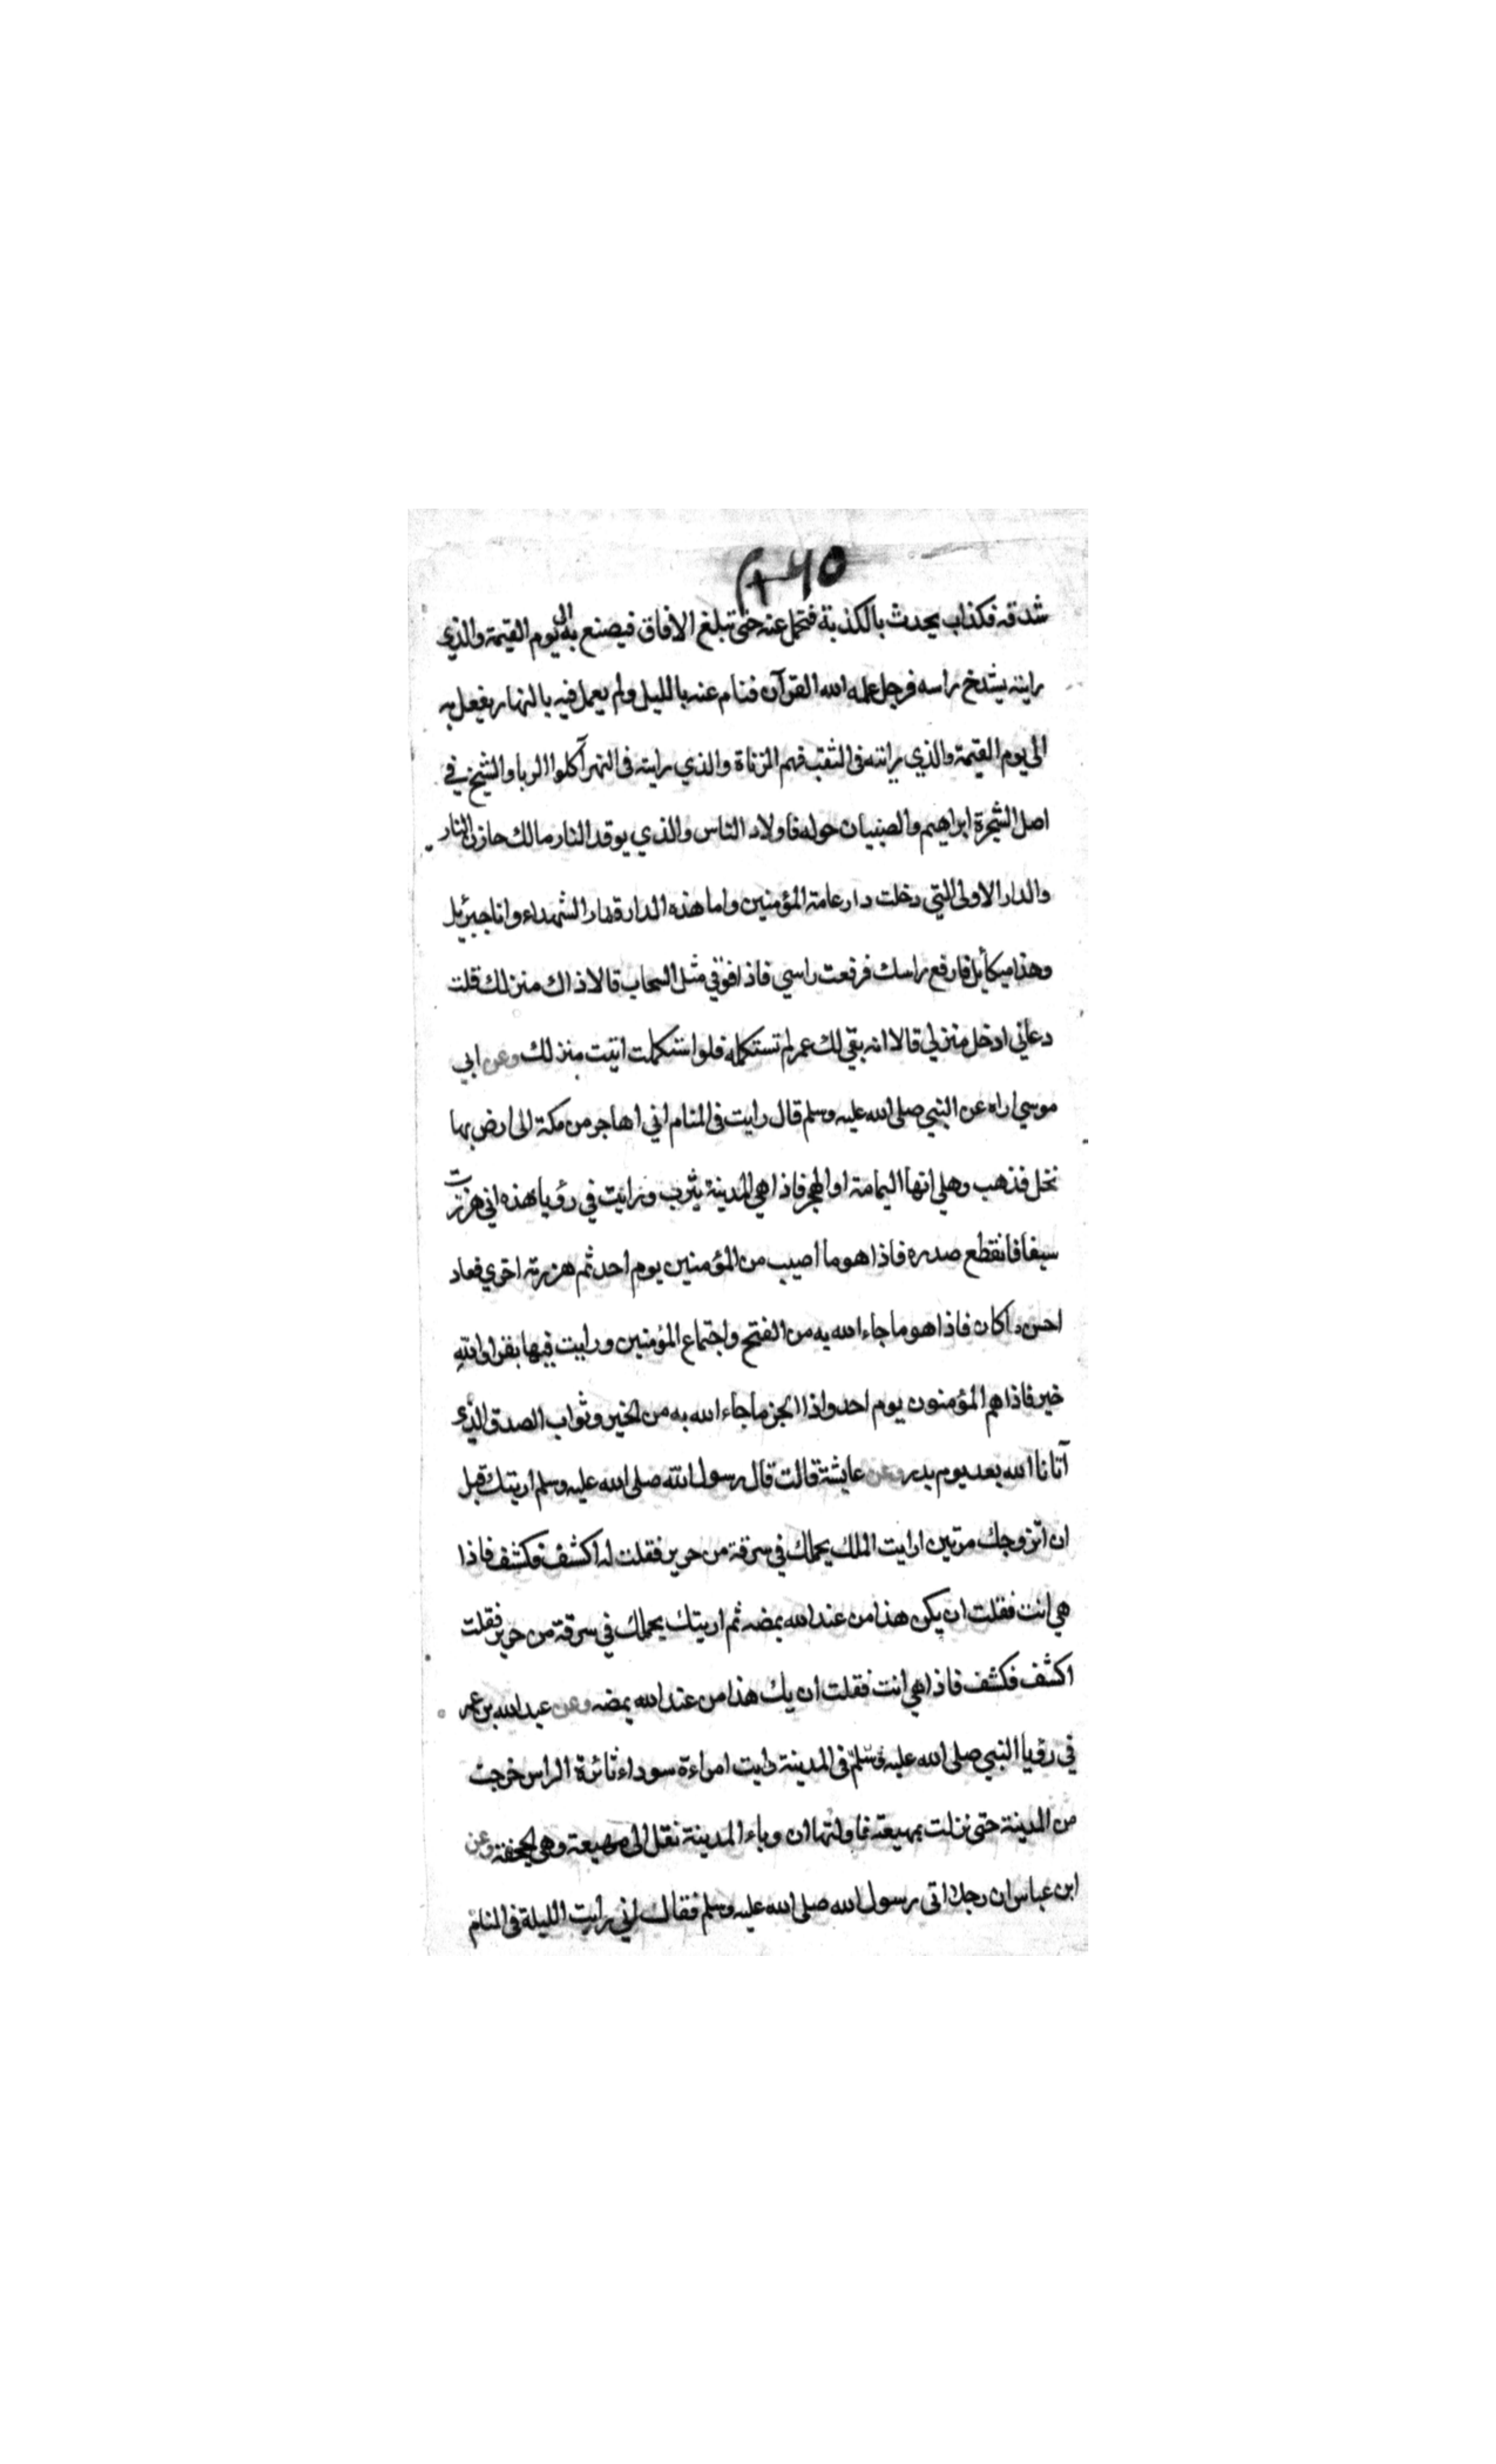 شدقه فكذاب يحدث بالكذبة فتحمل عنه حتى تبلغ الافاق فيصنع به الى يوم القيمة والذي
رايته يشدخ راسه فرجل علمه الله القرآن فنام عنه بالليل ولم يعمل فيه بالنهار يفعل به
الى يوم القيمة والذي رايته في الثقب فهم الزناة والذي رايته في النهر آكلوا الربا والشيخ في
اصل الشجرة ابراهيم والصبيان حوله فاولاد الناس والذي يوقد النار مالك خازن النار
والدار الاولى اللتي دخلت دار عامة المؤمنين واما هذه الدار فدار الشهداء وانا جبرئيل
وهذا ميكائيل فارفع راسك فرفعت راسي فاذا فوقي مثل السحاب قالا ذاك منزلك قلت
دعاني ادخل منزلي قالا انه بقي لك عمر لم تستكمله فلو استكملت اتيت منزلك وعن ابي
موسي اراه عن النبي صلى الله عليه وسلم قال رايت في المنام اني اهاجر من مكة الى ارض بها
نخل فذهب وهلي انها اليمامة او الهجر فاذا هي المدينة يثرب ورايت في رؤياي هذه اني هززت
سيفا فانقطع صدره فاذا هو ما اصيب من المؤمنين يوم احد ثم هززته اخري فعاد
احسن ما كان فاذا هو ما جاء الله به من الفتح واجتماع المؤمنين ورايت فيها بقرا والله
خير فاذا هم المؤمنون يوم احد واذا الخير ما جاء الله به من الخير وثواب الصدق الذي
آتانا الله بعد يوم بدر وعن عايشة قالت قال رسول الله صلى الله عليه وسلم اريتك قبل
ان اتزوجك مرتين ارايت الملك يحملك في سرقة من حرير فقلت له اكشف فكشف فاذا
هي انت فقلت ان يكن هذا من عند الله يمضه ثم اريتك يحملك في سرقة من حرير فقلت
اكشف فكشف فاذا هي انت فقلت ان يك هذا من عند الله يمضه وعن عبد الله بن عمر
في رؤيا النبي صلى الله عليه وسلم في المدينة رايت امراءة سوداء ثائرة الراس خرجت
من المدينة حتى نزلت بمهيعة فاولتها ان وباء المدينة نقل الى مهيعة وهي الجحفة وعن
ابن عباس ان رجلا اتى رسول الله صلى الله عليه وسلم فقال اني رايت الليلة في المنام